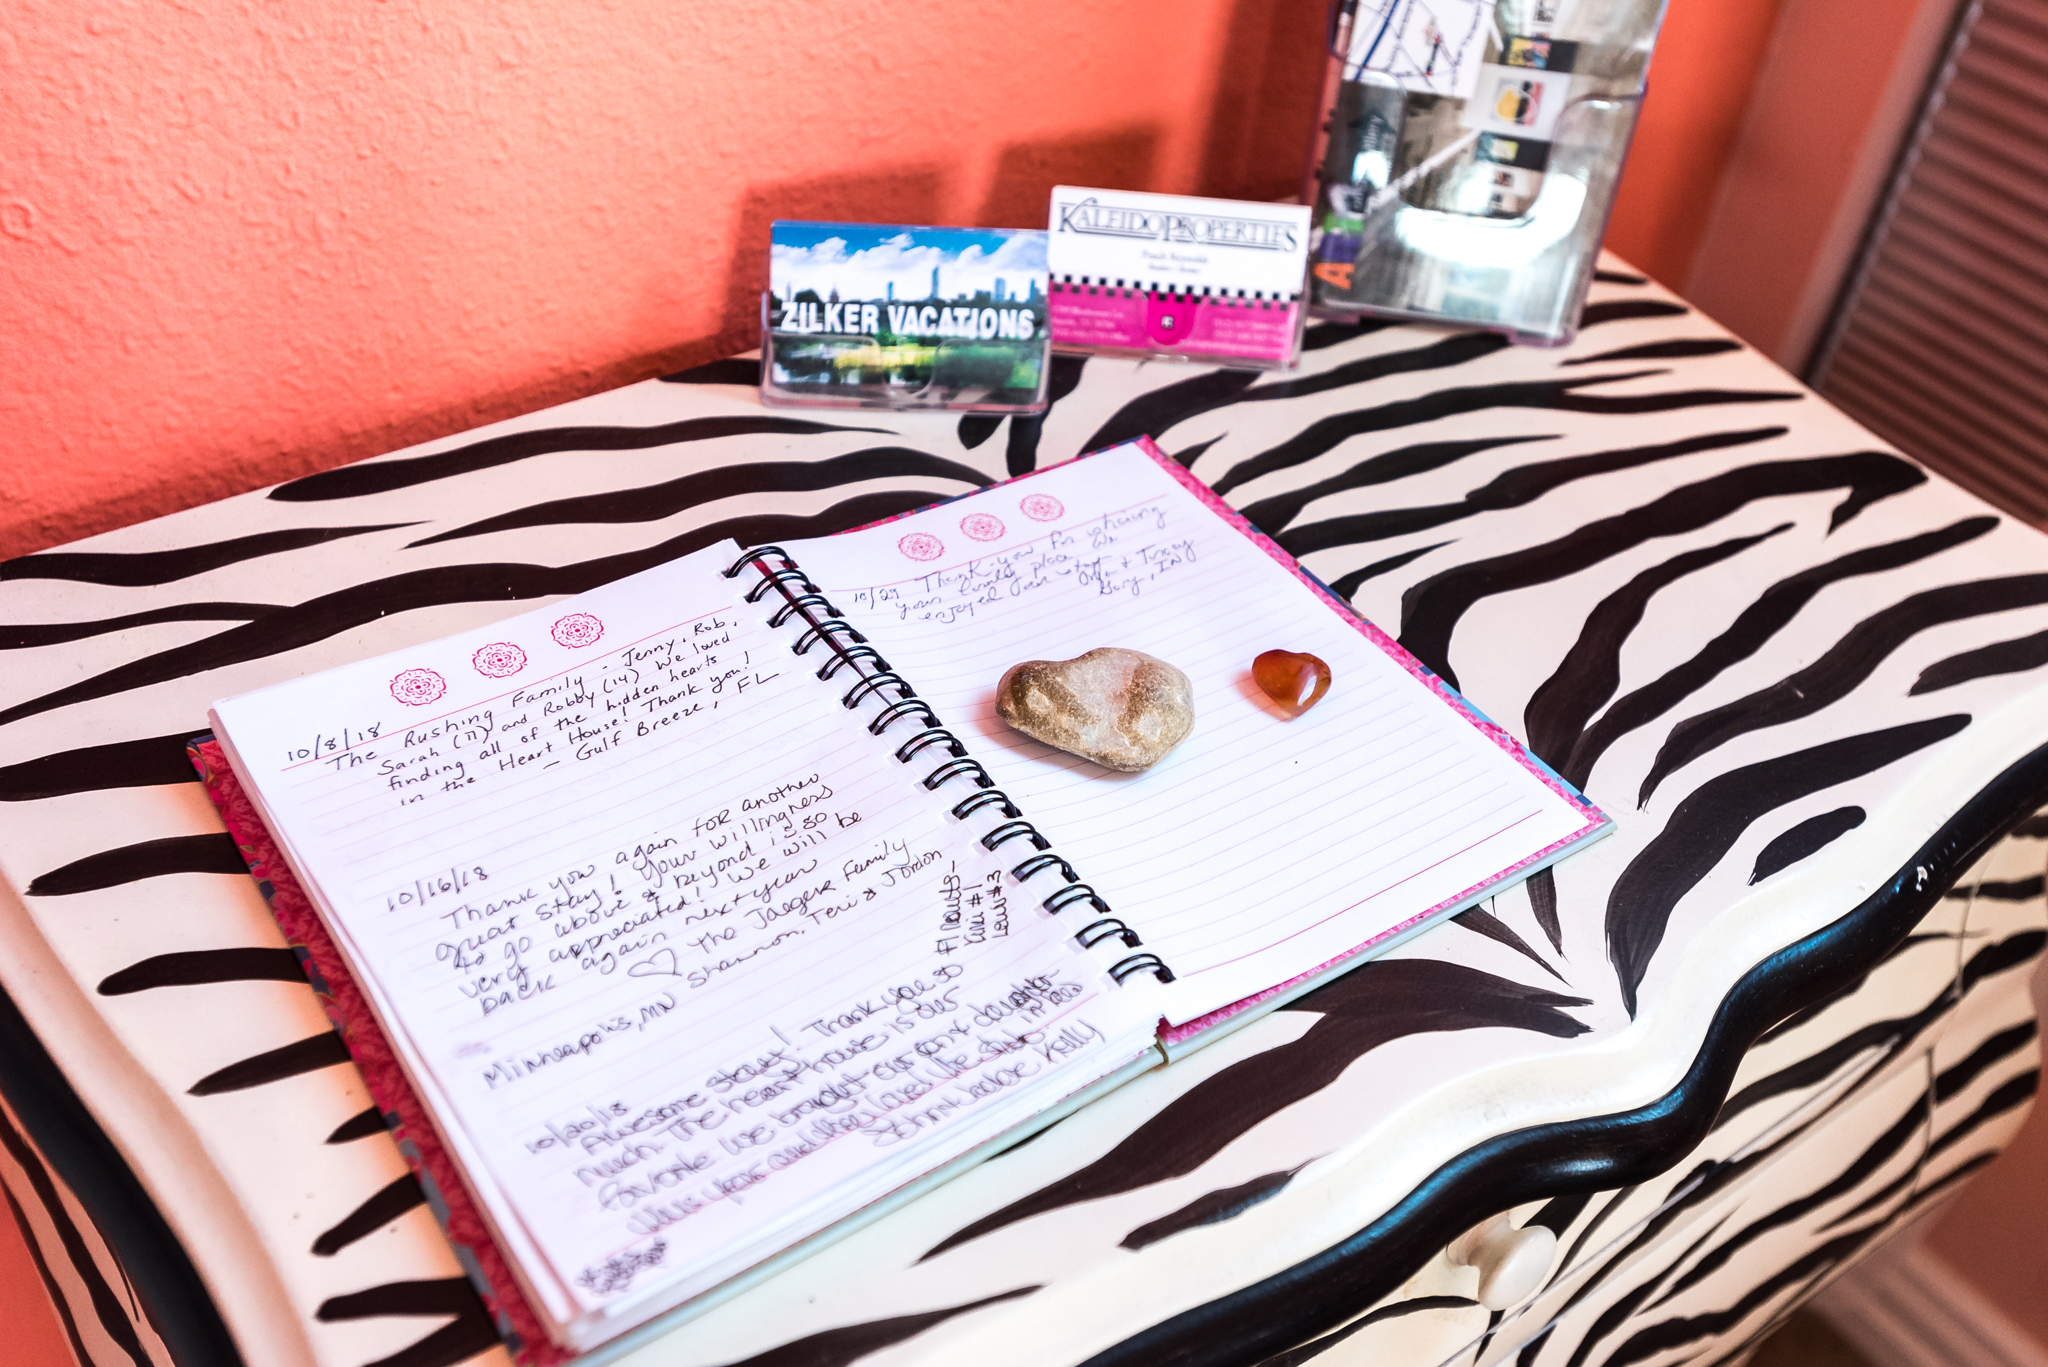 ZILKER VACATIONS
KALEIDOPROPERTIES
10/8/18
The Rushing Family - Jenny, Rob,
Sarah (17) and Robby (14) We loved
finding all of the hidden hearts
in the Heart House! Thank you!
- Gulf Breeze, FL
10/16/18
Thank you again for another
great stay! Your willingness
to go above & beyond is so
very appreciated! We will be
back again next year
♡ The Jaegers Family
Shannon, Teri & Jordon
Minneapolis, MN
10/20/18
Awesome stay! Thank you so
much. The heart house is our
favorite we brought our
this year and they love
Kelly
#1
#3
10/29 Thank-you for sharing
your lovely place. We
enjoyed our stay
& Tracey
Gary, IN